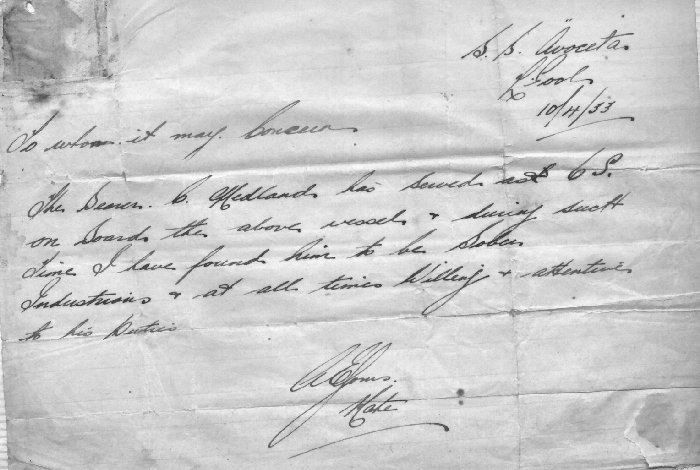 S.S. Avoceta
L'pool
10/4/33
To whom it may Concern
The Bearer. C. Medland has served as
on board the above vessel & during such
time I have found him to be Sober
Industrious & at all times Willing & attentive
to his Duties
Mate